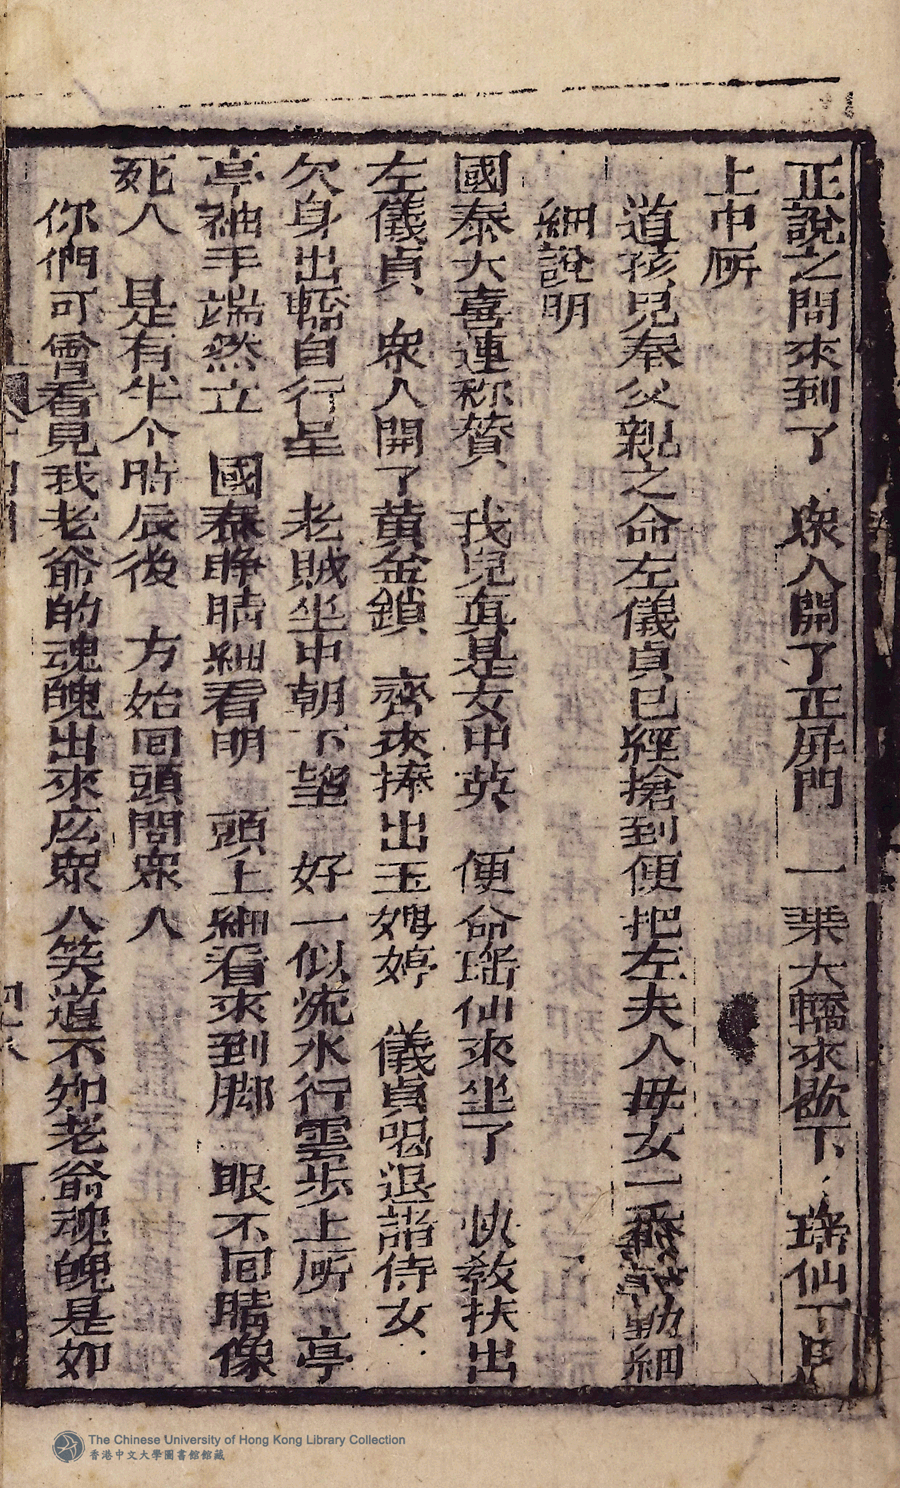 正說之間來到了　衆人開了正屏門　一乗大轎來歇下　瑶仙下馬
上中㕔
道孩兒奉父親之命左儀貞已經搶到便把左夫人母女一番勤細
細說明
國泰大喜連称贊　我兒真是女中英　便命瑶仙來坐了　快教扶出
左儀貞　衆人開了黄金鎖　齊來捧出玉娉婷　儀貞喝退諸侍女
欠身出轎自行呈　老賊坐中朝下望　好一似流水行雲步上㕔　亭
亭袖手端然立　國泰睁睛細看明　頭上細看來到脚　眼不回睛像
死人　是有半个時辰後　方始回頭問衆人
你們可曾看見我老爺的魂魄出來広衆人笑道不知老爺魂魄是如
The Chinese University of Hong Kong Library Collection
香港中文大學圖書館館藏